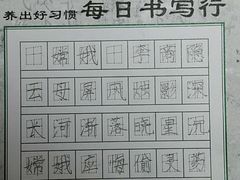 养出好习惯 每日书写行
嫦娥 李商隐
云母屏风烛影深
长河渐落晓星沉
嫦娥应悔偷灵药